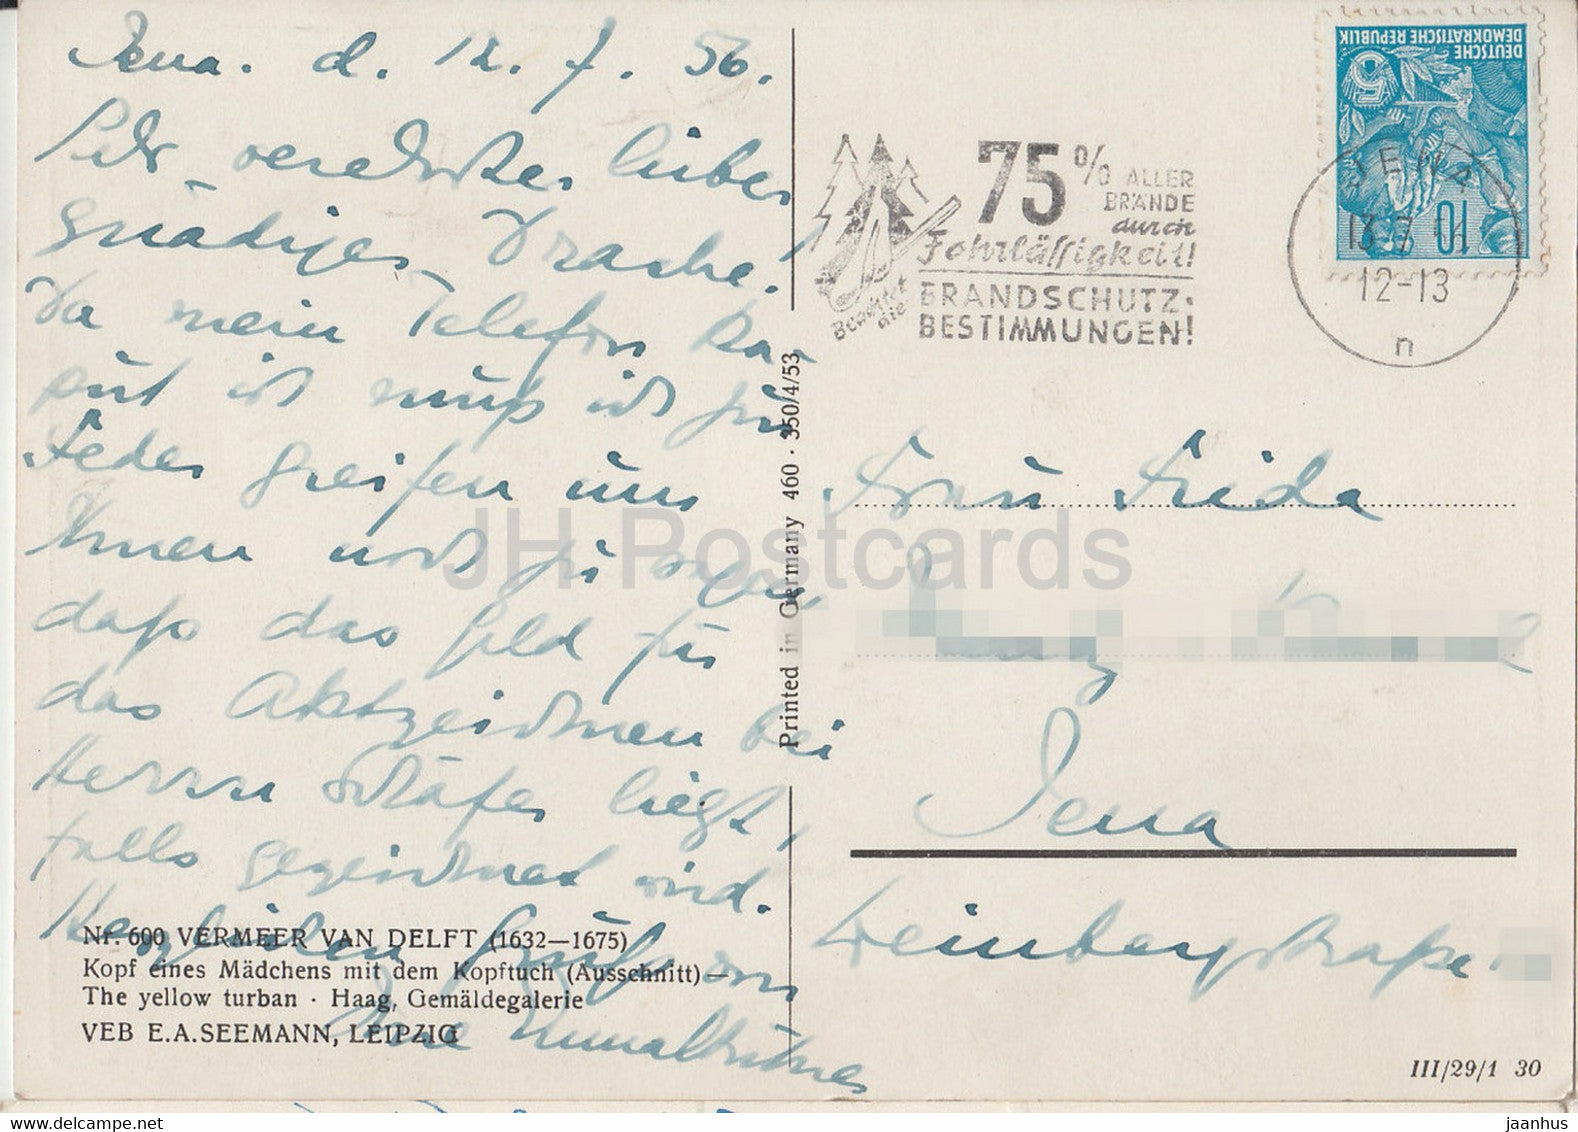 Jena. d. 12. 7. 56.
Sehr verehrter lieber
gnädiger Drache!
Da mein Telefon ka-
put ist muß ich zur
Feder greifen um
Ihnen noch zu sagen,
daß das Geld für
das Aktzeichnen bei
Herrn Schäfer liegt,
falls gezeichnet wird.
Herzlichen Gruß von
Ihre
Nr. 600 VERMEER VAN DELFT (1632—1675)
Kopf eines Mädchens mit dem Kopftuch (Ausschnitt)—
The yellow turban · Haag, Gemäldegalerie
VEB E.A.SEEMANN, LEIPZIG
Printed in Germany 460 · 350/4/53
75% ALLER
BRÄNDE
durch
Fahrlässigkeit!
Beachtet
die
BRANDSCHUTZ-
BESTIMMUNGEN!
DEUTSCHE
DEMOKRATISCHE REPUBLIK
10
JENA
13.7.56
12-13
n
Frau Frieda
Jena
Weinbergstraße
III/29/1 30
JH Postcards
www.delcampe.net
jaanhus